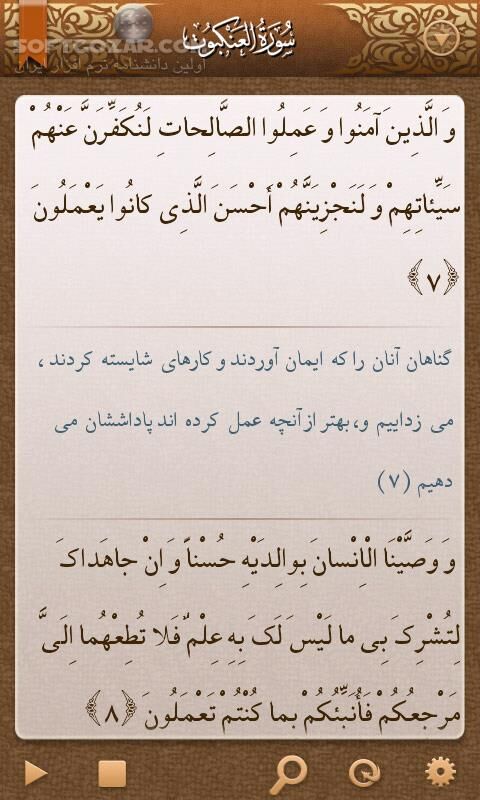 SOFTGOZAR.COM
سُورَةُ العَنكَبُوت
اولین دانشنامه نرم افزار ایران
وَ الَّذِینَ آمَنُوا وَ عَمِلُوا الصَّالِحاتِ لَنُكَفِّرَنَّ عَنْهُمْ
سَیِّئاتِهِمْ وَ لَنَجْزِیَنَّهُمْ أَحْسَنَ الَّذِی كانُوا یَعْمَلُونَ
﴿۷﴾
گناهان آنان را که ایمان آوردند و کارهای شایسته کردند ،
می زداییم و، بهتر از آنچه عمل کرده اند پاداششان می
دهیم (۷)
وَ وَصَّیْنَا الْإِنْسانَ بِوالِدَیْهِ حُسْناً وَ إِنْ جاهَداكَ
لِتُشْرِكَ بِی ما لَیْسَ لَكَ بِهِ عِلْمٌ فَلا تُطِعْهُما إِلَیَّ
مَرْجِعُكُمْ فَأُنَبِّئُكُمْ بِما كُنْتُمْ تَعْمَلُونَ ﴿۸﴾